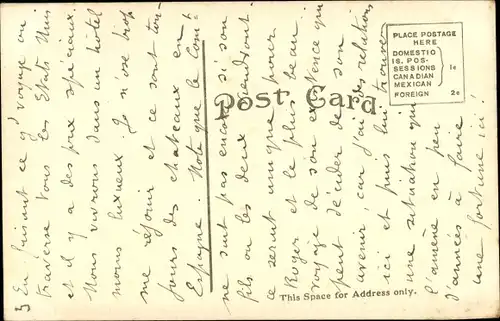 3 En faisant ce gd voyage on
traverse tous les Etats Unis
et il y a des prix spéciaux.
Nous vivrons dans un hôtel
moins luxueux. Je n'ose trop
me réjouir et ce sont tou-
jours des chateaux en
Espagne. Note que le Com!
ne sont pas encore si son
fils ou les deux viendront.
ce serait unique pour
Roger et le plus beau
voyage de son existence qui
peut décider de son
avenir car j'ai des relations
ici et puis lui trouver
une situation qui
l'amène en peu
d'années à faire
une fortune ici!
Post Card
PLACE POSTAGE
HERE
DOMESTIC
IS. POS-
SESSIONS
CANADIAN
MEXICAN
1c
FOREIGN 2c
This Space for Address only.